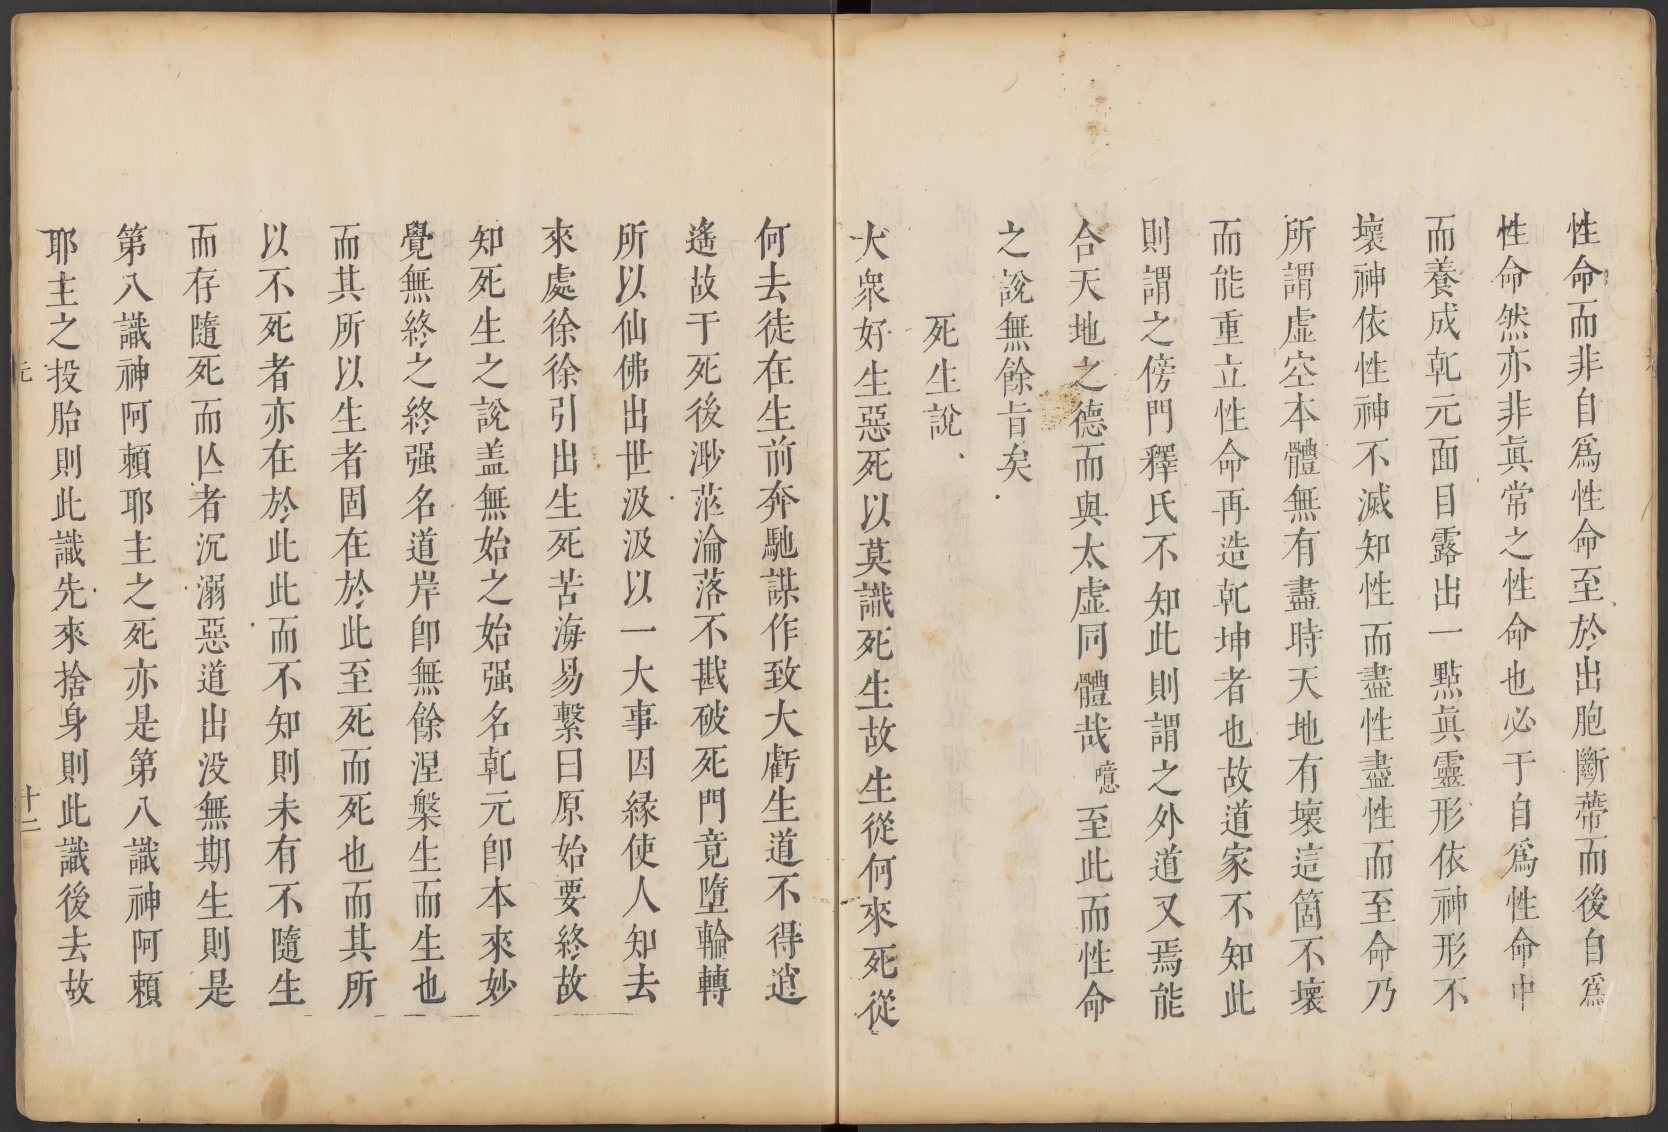 性命而非自爲性命至於出胞斷蔕而後自爲
性命然亦非眞常之性命也必于自爲性命中
而養成乾元面目露出一點眞靈形依神形不
壞神依性神不滅知性而盡性盡性而至命乃
所謂虛空本體無有盡時天地有壞這箇不壞
而能重立性命再造乾坤者也故道家不知此
則謂之傍門釋氏不知此則謂之外道又焉能
合天地之德而與太虛同體哉噫至此而性命
之說無餘旨矣
死生說
大衆好生惡死以莫識死生故生從何來死從
何去徒在生前奔馳謀作致大虧生道不得逍
遙故于死後渺茫淪落不戡破死門竟墮輪轉
所以仙佛出世汲汲以一大事因緣使人知去
來處徐徐引出生死苦海易繫曰原始要終故
知死生之說盖無始之始强名乾元卽本來妙
覺無終之終强名道岸卽無餘涅槃生而生也
而其所以生者固在於此至死而死也而其所
以不死者亦在於此此而不知則未有不隨生
而存隨死而亾者沉溺惡道出没無期生則是
第八識神阿賴耶主之死亦是第八識神阿賴
耶主之投胎則此識先來捨身則此識後去故
元
十二